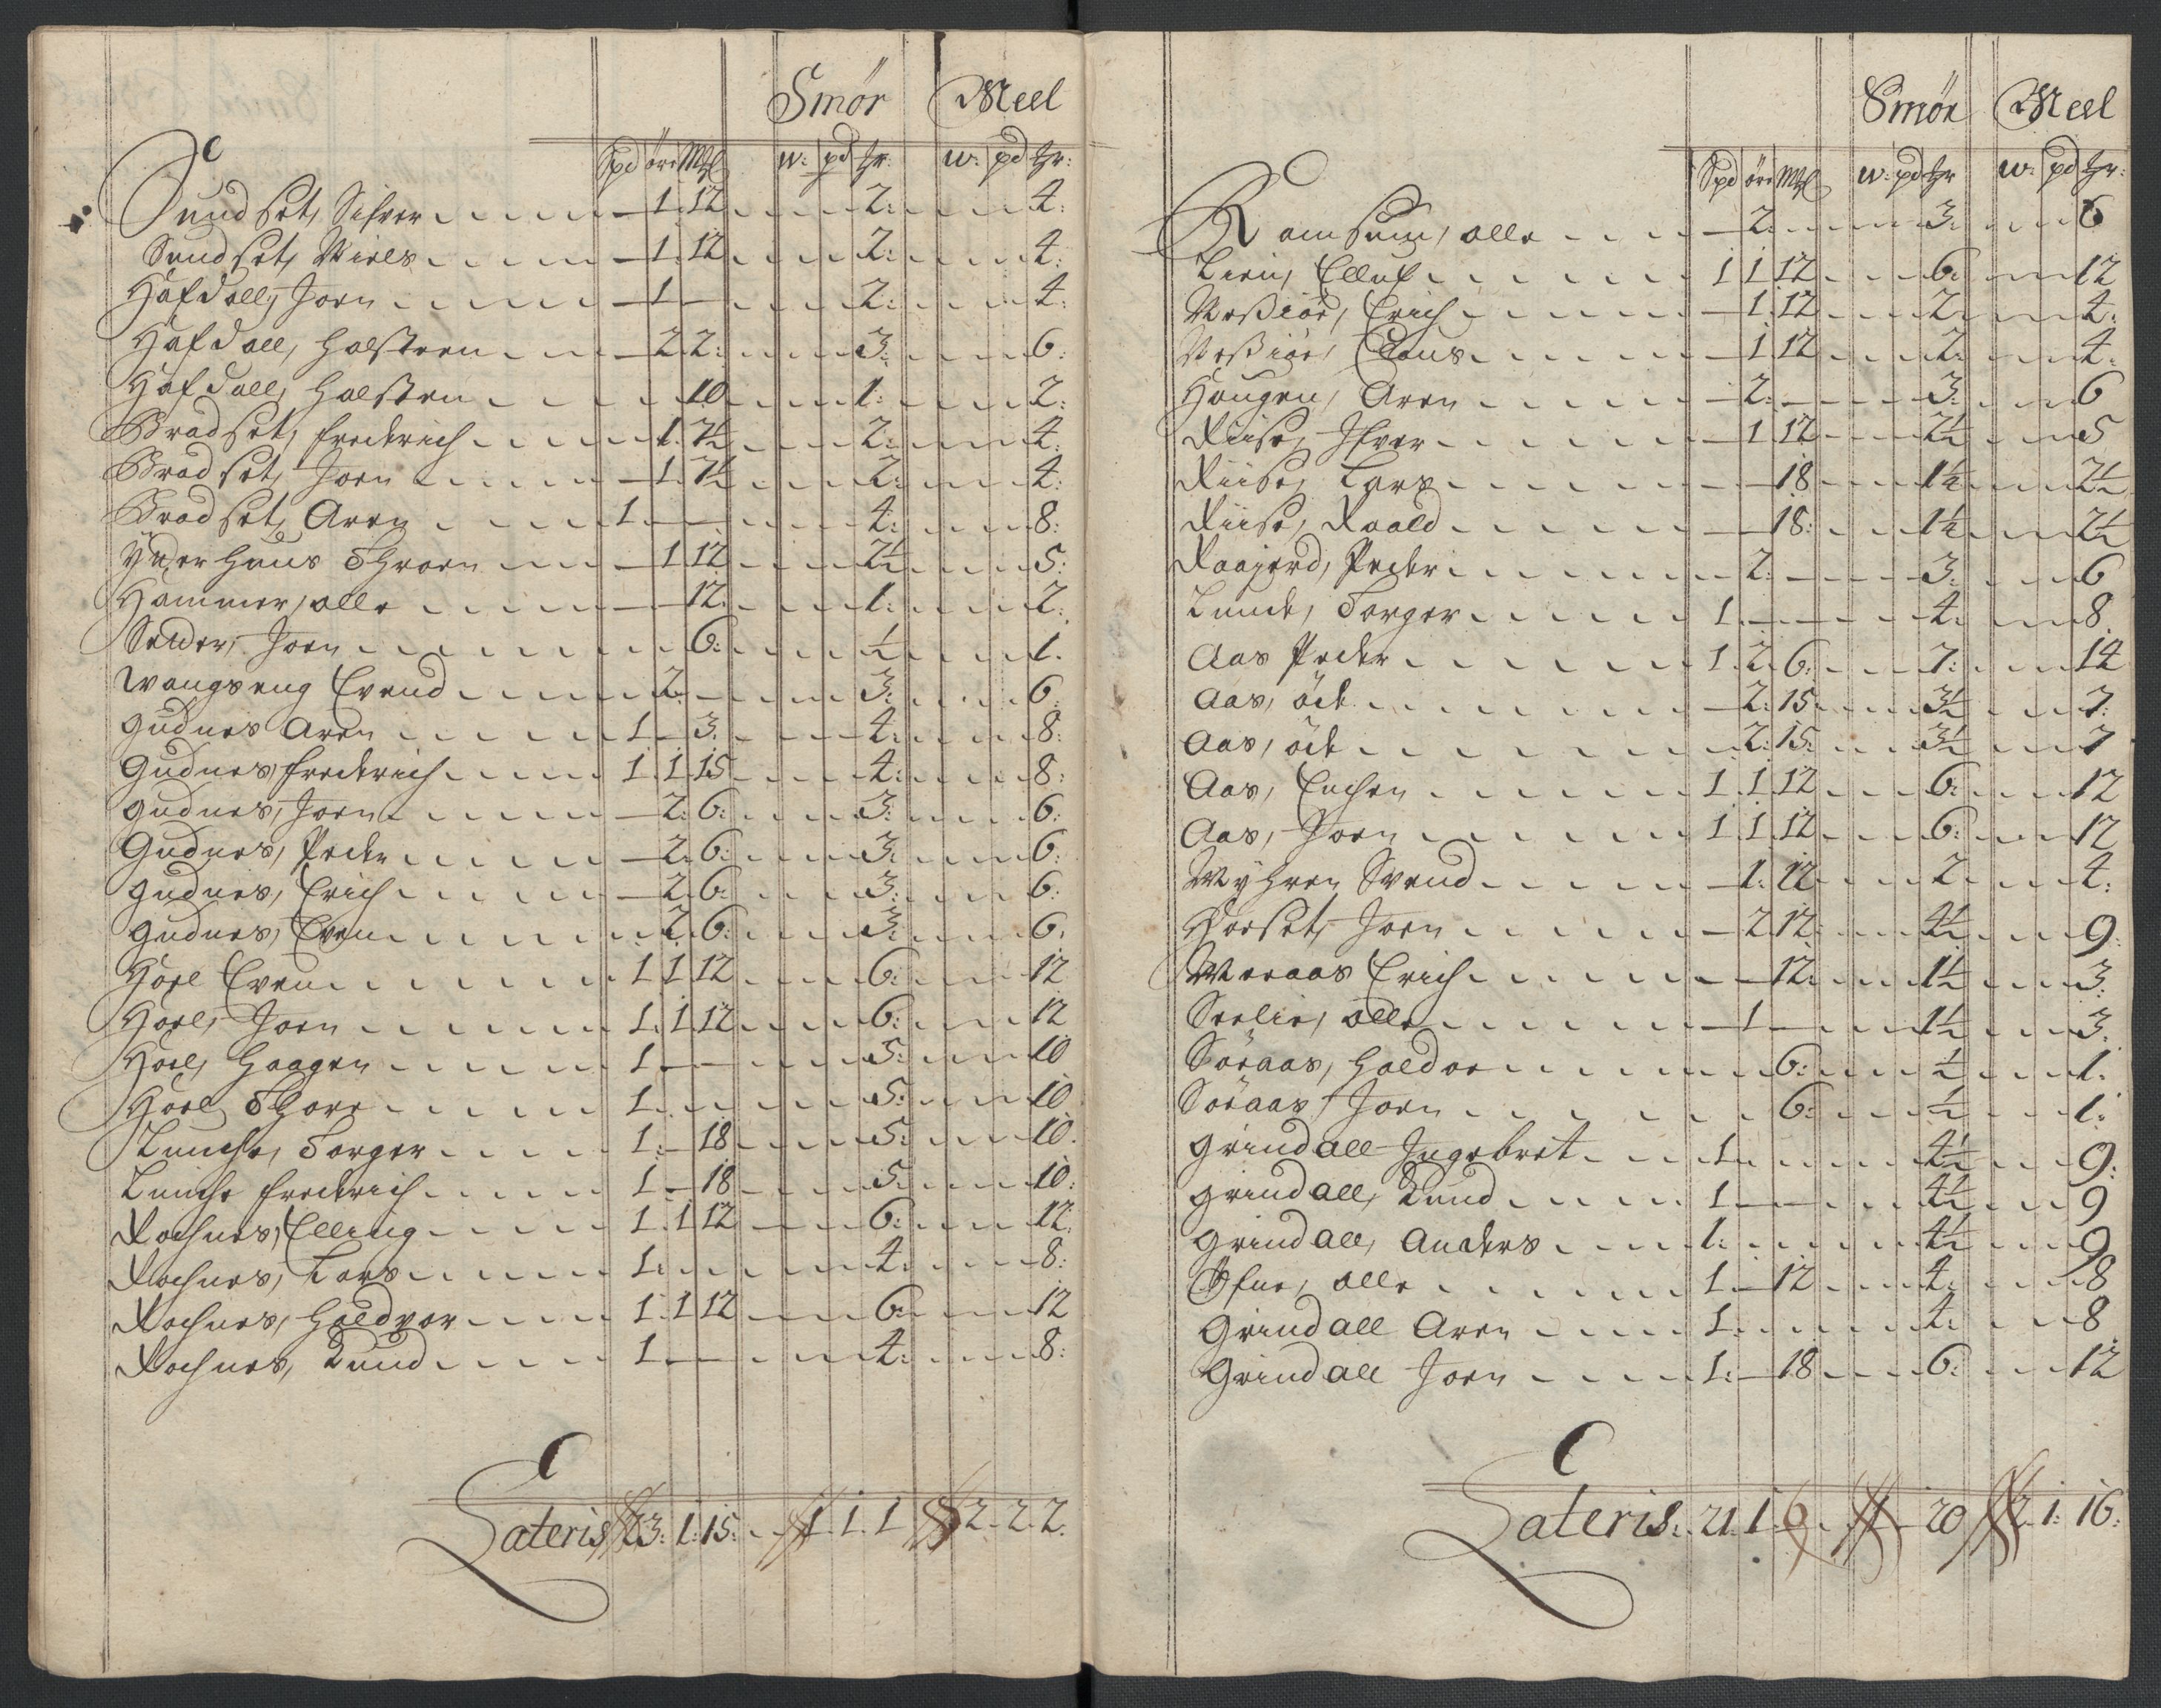 Smør Meel
Spd öre Mkl w: pd Hr: w: pd Hr:
Sundset, Sifver 1 12 2: 4:
Sundset, Niels 1 12 2: 4:
Hafdall, Joen 1 — 2: 4:
Hafdall, Halsteen 2 2: 3: 6:
Hafdall, Halsteen 10 1: 2:
Bradset, Frederich 1 7½ 2: 4:
Bradset, Joen 1 7½ 2: 4:
Bradset, Aren 1 — — 4: 8:
Yderhuus Throen 1 12 2½ 5:
Hammer, olle 12 1: 2:
Joen 6: ½ 1.
Wangseng Evend 2 — 3: 6:
Gudnes Aren 1 — 3. 4: 8:
Gudnes, Frederich 1 1 15 4: 8:
Gudnes, Joen 2: 6: 3: 6:
Gudnes, Peder 2: 6: 3: 6:
Gudnes, Erich 2 6: 3: 6:
Gudnes, Even 2 6: 3: 6:
Hoel Even 1 1 12 6: 12
Hoel, Joen 1: 1 12 6: 12
Hoel, Haagen 1 — 5: 10
Hoel, Thore 1 5: 10
Lunche, Torger 1: — 18 5: 10:
Lunche Frederich 1 — 18 5: 10:
Rochnes, Elling 1 1 12 6: 12:
Rochnes, Lars 1: 4: 8:
Rochnes, Haldvor 1 1 12 6: 12
Rochnes, Knud 1 — — 4: 8:
Lateris 23: 1: 15: 1. 1. 1 2. 2. 2.
Smør Meel
Spd öre Mkl w: pd Hr w: pd Hr:
Ramsum, olle 2: 3: 6
Lien, Elluf 1 1 12 6: 12
Erich 1 12 2 4:
Claus 1 12 2: 4:
Haugen, Aren 2: — 3: 6
Riise, Ifver 1 12 2½ 5
Riise, Lars 18 1¼ 2½
Riise, Roald 18: 1¼ 2½
Raajord, Peder 2: — 3: 6
Lunde, Torger 1 — — 4: 8
Aas Peder 1 2 6: 7: 14
Aas, öde 2: 15 3½ 7:
Aas, öde 2: 15: 3½ 7
Aas, Enchen 1 1 12 6: 12
Aas, Joen 1 1 12 6: 12
Myhren Svend 1: 12 2 4:
Joen 2 12 4½ 9:
Moeaas Erich 12: 1½ 3:
Seelie, olle 1 — 1½ 3:
Söraas, Haldor 6: ½ 1:
Söraas, Joen 6: ½ 1:
Grindall Ingebret 1 4½ 9:
Grindall, Knud 1 — — 4½ 9
Grindall, Anders 1: 4½ 9
olle 1 — 12 4: 8
Grindall Aren 1: 4: 8
Grindall Joen 1: — 18 6: 12
Lateris. 21 1 6 1 — 20 2 1: 16: